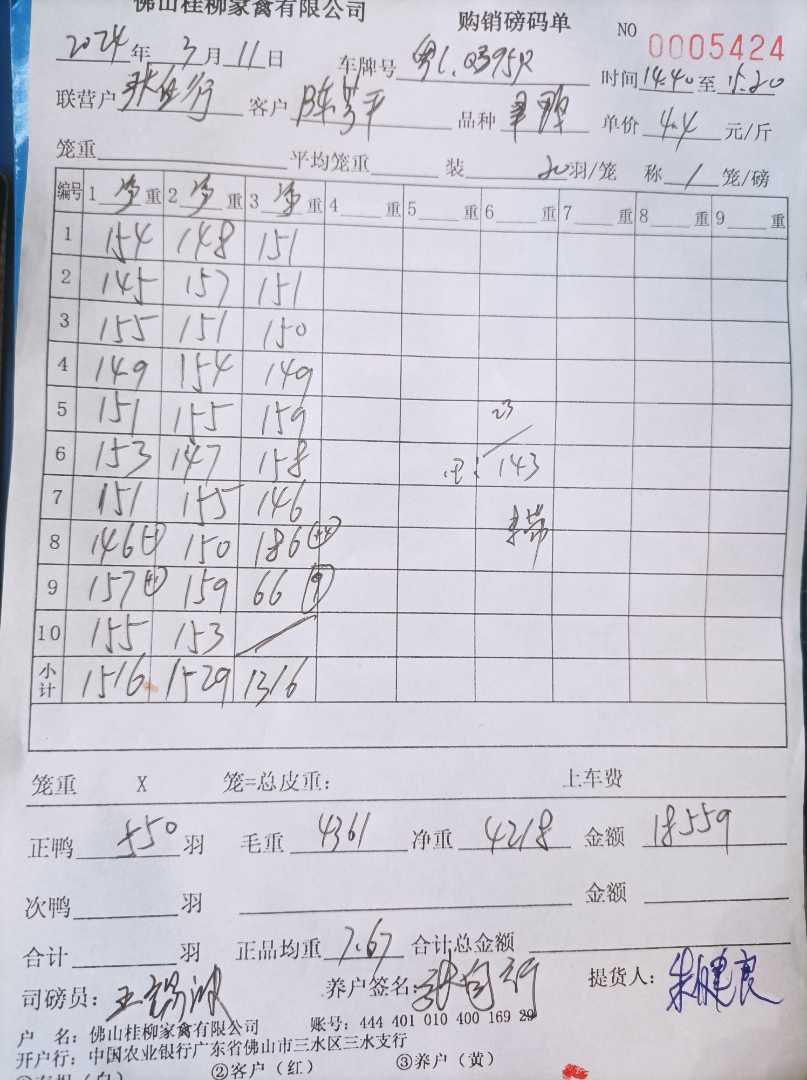 佛山桂柳家禽有限公司 购销磅码单 NO 0005424
2024年3月11日 车牌号 时间14.40至15.20
联营户 客户 品种 单价4.4元/斤
笼重 平均笼重 装20羽/笼 称1笼/磅
编号 1净重 2净重 3净重 4重 5重 6重 7重 8重 9重
1 154 148 151
2 145 157 151
3 155 151 150
4 149 154 149
5 151 155 159 23
6 153 147 158 143
7 151 155 146
8 146 150 186
9 157 159 66
10 155 153
小计 1516 1529 1316
笼重 X 笼=总皮重: 上车费
正鸭550羽 毛重4361 净重4218 金额18559
次鸭 羽 金额
合计 羽 正品均重7.67 合计总金额
司磅员: 养户签名: 提货人:
户 名: 佛山桂柳家禽有限公司 账号: 444 401 010 400 169 29
开户行: 中国农业银行广东省佛山市三水区三水支行
②客户(红) ③养户(黄)